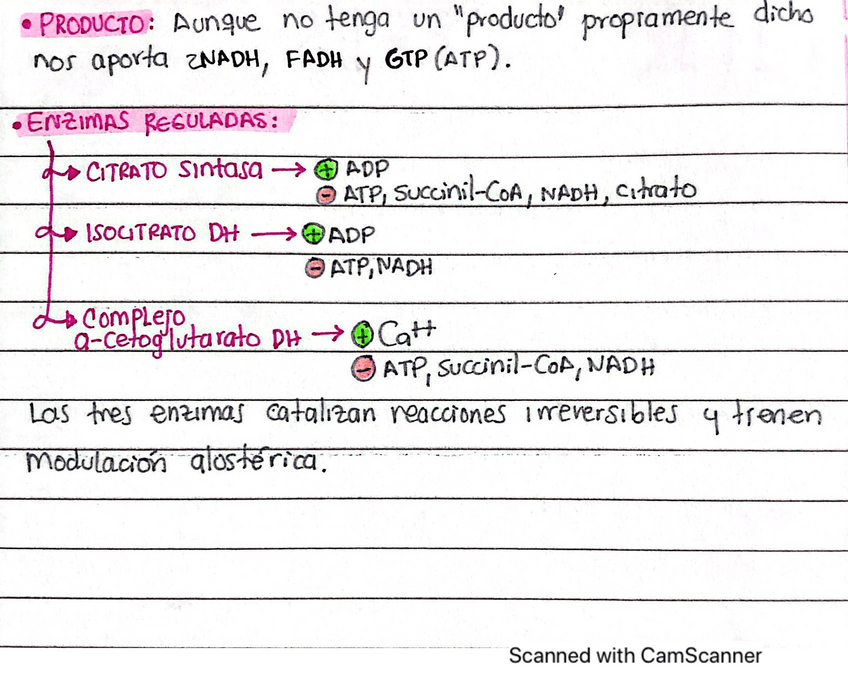 • PRODUCTO: Aunque no tenga un "producto" propiamente dicho
nos aporta 2NADH, FADH y GTP (ATP).
• ENZIMAS REGULADAS:
CITRATO Sintasa → + ADP
- ATP, Succinil-CoA, NADH, citrato
ISOCITRATO DH → + ADP
- ATP, NADH
Complejo
α-cetoglutarato DH → + Ca++
- ATP, Succinil-CoA, NADH
Las tres enzimas catalizan reacciones irreversibles y tienen
modulación alostérica.
Scanned with CamScanner